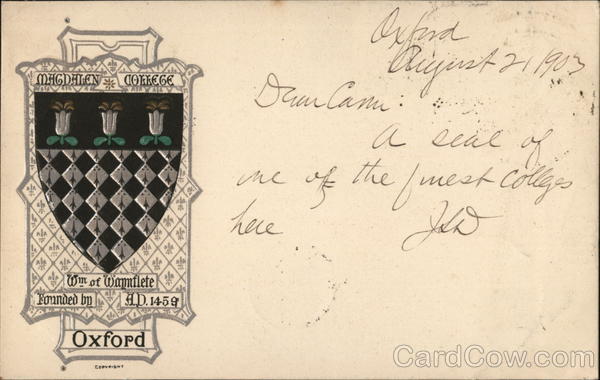 MAGDALEN COLLEGE
Wm of Waynflete
Founded by A.D. 1459
Oxford
COPYRIGHT
Oxford
August 2, 1903
Dear Cam:
A seal of
one of the finest Colleges
here
CardCow.com